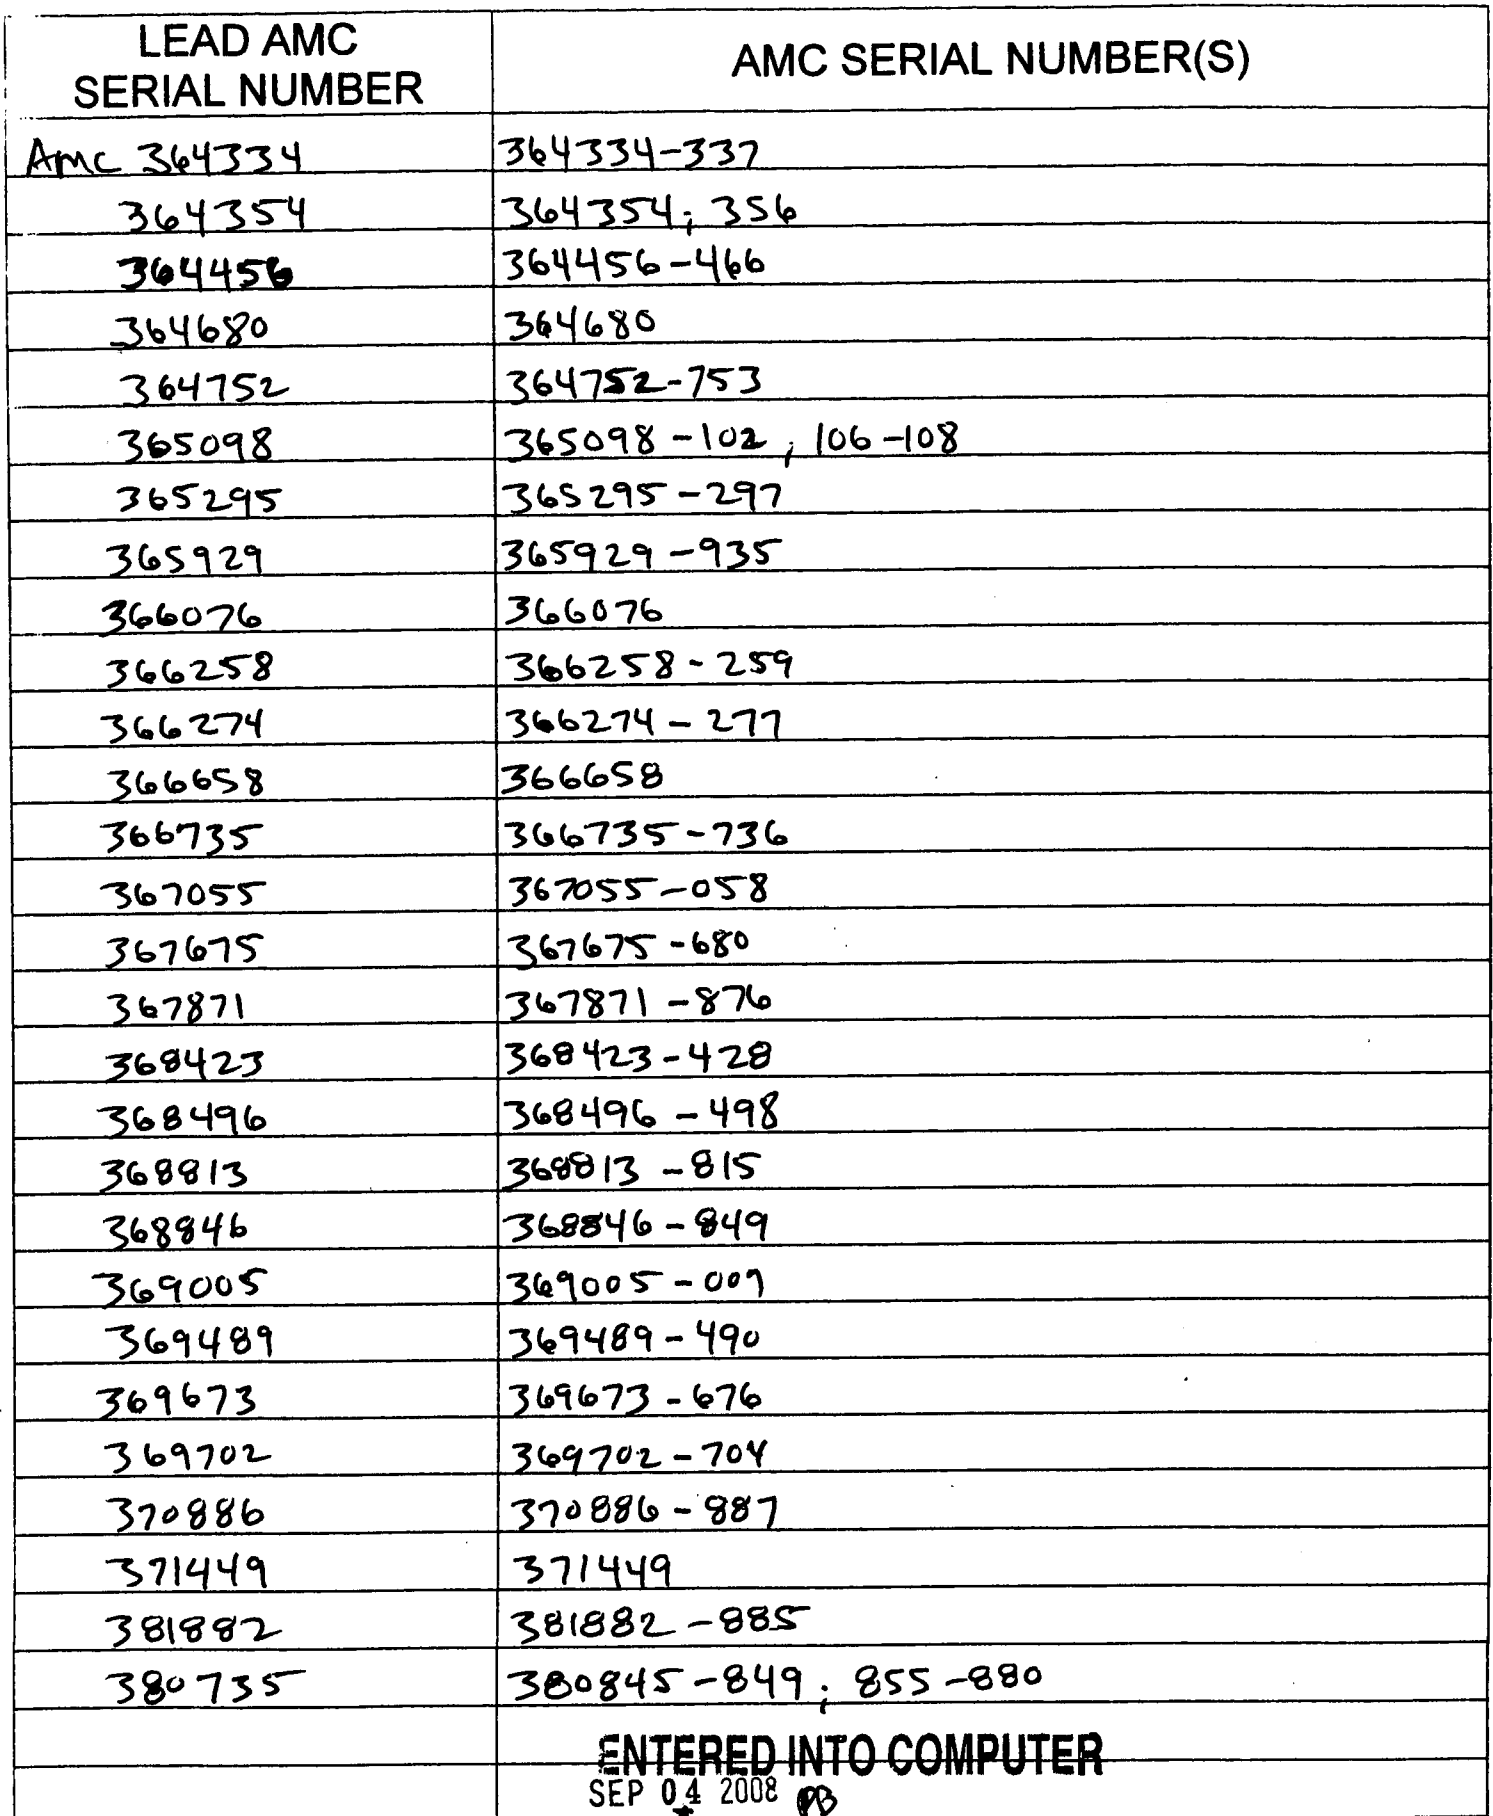 LEAD AMC
SERIAL NUMBER
AMC SERIAL NUMBER(S)
Amc 364334 364334-337
364354 364354; 356
364456 364456-466
364680 364680
364752 364752-753
365098 365098-102; 106-108
365295 365295-297
365929 365929-935
366076 366076
366258 366258-259
366274 366274-277
366658 366658
366735 366735-736
367055 367055-058
367675 367675-680
367871 367871-876
368423 368423-428
368496 368496-498
368813 368813-815
368846 368846-849
369005 369005-009
369489 369489-490
369673 369673-676
369702 369702-704
370886 370886-887
371449 371449
381882 381882-885
380735 380845-849; 855-880
ENTERED INTO COMPUTER
SEP 04 2008 PB